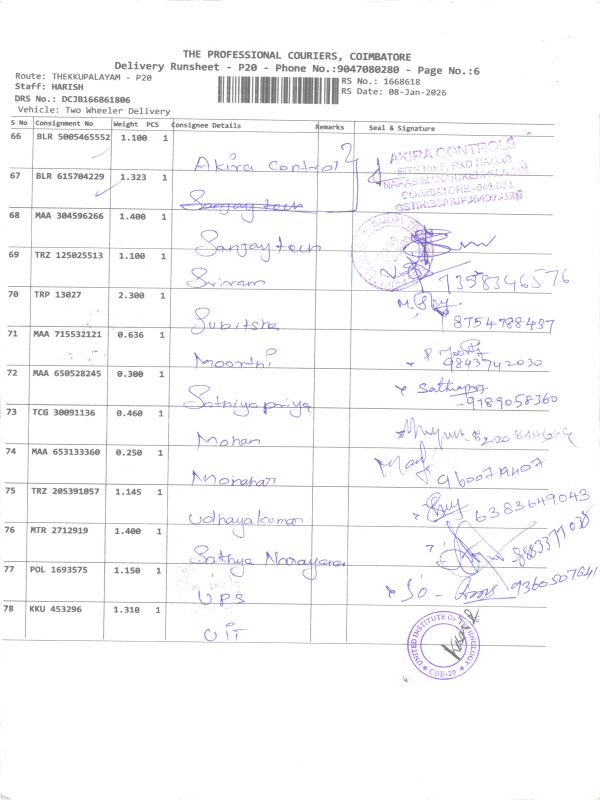 THE PROFESSIONAL COURIERS, COIMBATORE
Delivery Runsheet - P20 - Phone No.:9047080280 - Page No.:6
Route: THEKKUPALAYAM - P20
RS No.: 1668618
Staff: HARISH
RS Date: 08-Jan-2026
DRS No.: DCJB166861806
Vehicle: Two Wheeler Delivery
S No Consignment No Weight PCS Consignee Details Remarks Seal & Signature
66 BLR 5005465552 1.100 1
Akira control
AKIRA CONTROLS
67 BLR 615704229 1.323 1
COIMBATORE-641 031
Sanjay tech
68 MAA 304596266 1.400 1
Sanjay tech
69 TRZ 125025513 1.100 1
Sriram 7358346576
70 TRP 13027 2.300 1
Subitsha 8754788437
71 MAA 715532121 0.636 1
Moorthi 9843742030
72 MAA 650528245 0.300 1
Sathiyapriya Sathiapriya
9789058360
73 TCG 30091136 0.460 1
Mohan
74 MAA 653133360 0.250 1
Manohari
75 TRZ 205391057 1.145 1
Udhayakumar 6383649043
76 MTR 2712919 1.400 1
Sathya Narayanan
77 POL 1693575 1.150 1
UPS 9360507641
78 KKU 453296 1.310 1
UIT
UNITED INSTITUTE OF TECHNOLOGY
CBE-20